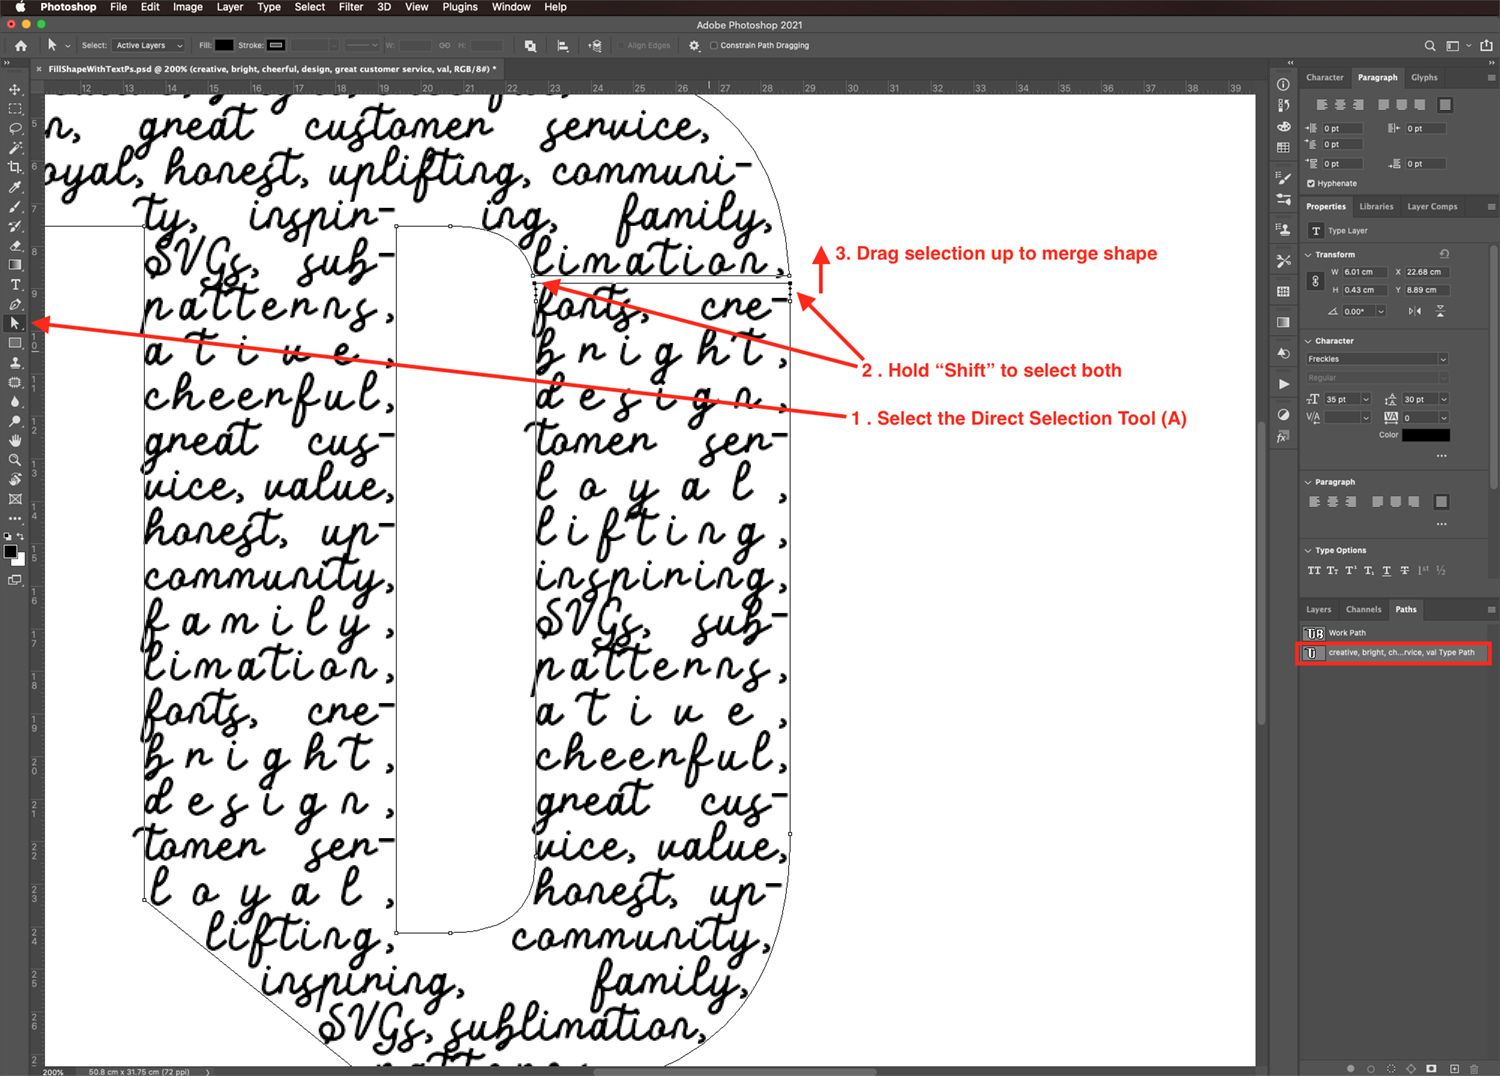 Photoshop File Edit Image Layer Type Select Filter 3D View Plugins Window Help
Adobe Photoshop 2021
Select: Active Layers Fill: Stroke: W: H: Align Edges Constrain Path Dragging
× FillShapeWithTextPs.psd @ 200% (creative, bright, cheerful, design, great customer service, val, RGB/8#) *
12 13 14 15 16 17 18 19 20 21 22 23 24 25 26 27 28 29 30 31 32 33 34 35 36 37 38 39
n, great customer service,
oyal, honest, uplifting, communi-
ty, inspir- ing, family,
SVGs, sub- limation,
patterns, fonts, cre-
ative, bright,
cheerful, design,
great cus- tomer ser-
vice, value, loyal,
honest, up- lifting,
community, inspiring,
family, SVGs, sub-
limation, patterns,
fonts, cre- ative,
bright, cheerful,
design, great cus-
tomer ser- vice, value,
loyal, honest, up-
lifting, community,
inspiring, family,
SVGs, sublimation,
patterns
3. Drag selection up to merge shape
2 . Hold “Shift” to select both
1 . Select the Direct Selection Tool (A)
Character Paragraph Glyphs
0 pt 0 pt
0 pt
0 pt 0 pt
Hyphenate
Properties Libraries Layer Comps
T Type Layer
Transform
W 6.01 cm X 22.68 cm
H 0.43 cm Y 8.89 cm
0.00°
Character
Freckles
Regular
35 pt 30 pt
V/A VA 0
Color
Paragraph
Type Options
TT Tt T¹ T₁ T T 1st ½
Layers Channels Paths
Work Path
creative, bright, ch...rvice, val Type Path
200% 50.8 cm x 31.75 cm (72 ppi)